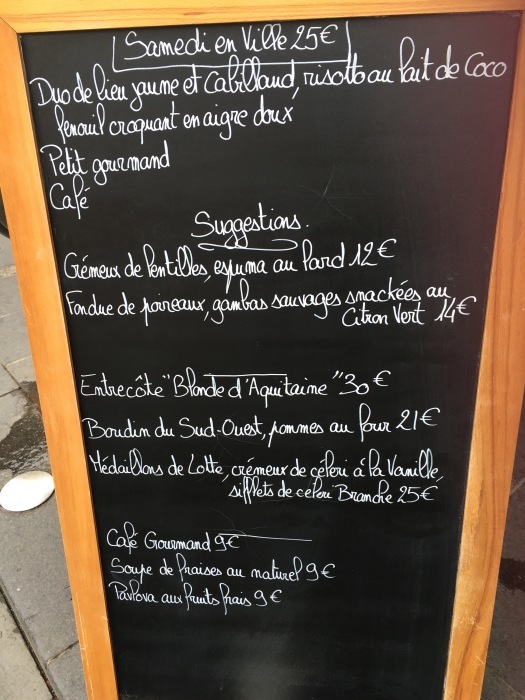 Samedi en Ville 25€
Duo de lieu jaune et Cabillaud, risotto au lait de Coco
fenouil croquant en aigre doux
Petit gourmand
Café
Suggestions.
Crémeux de lentilles, espuma au lard 12€
Fondue de poireaux, gambas sauvages snackées au
Citron Vert 14€
Entrecôte "Blonde d'Aquitaine" 30€
Boudin du Sud-Ouest, pommes au four 21€
Médaillons de Lotte, crémeux de céleri à la Vanille,
sifflets de céleri Branche 25€
Café Gourmand 9€
Soupe de fraises au naturel 9€
Pavlova aux fruits frais 9€